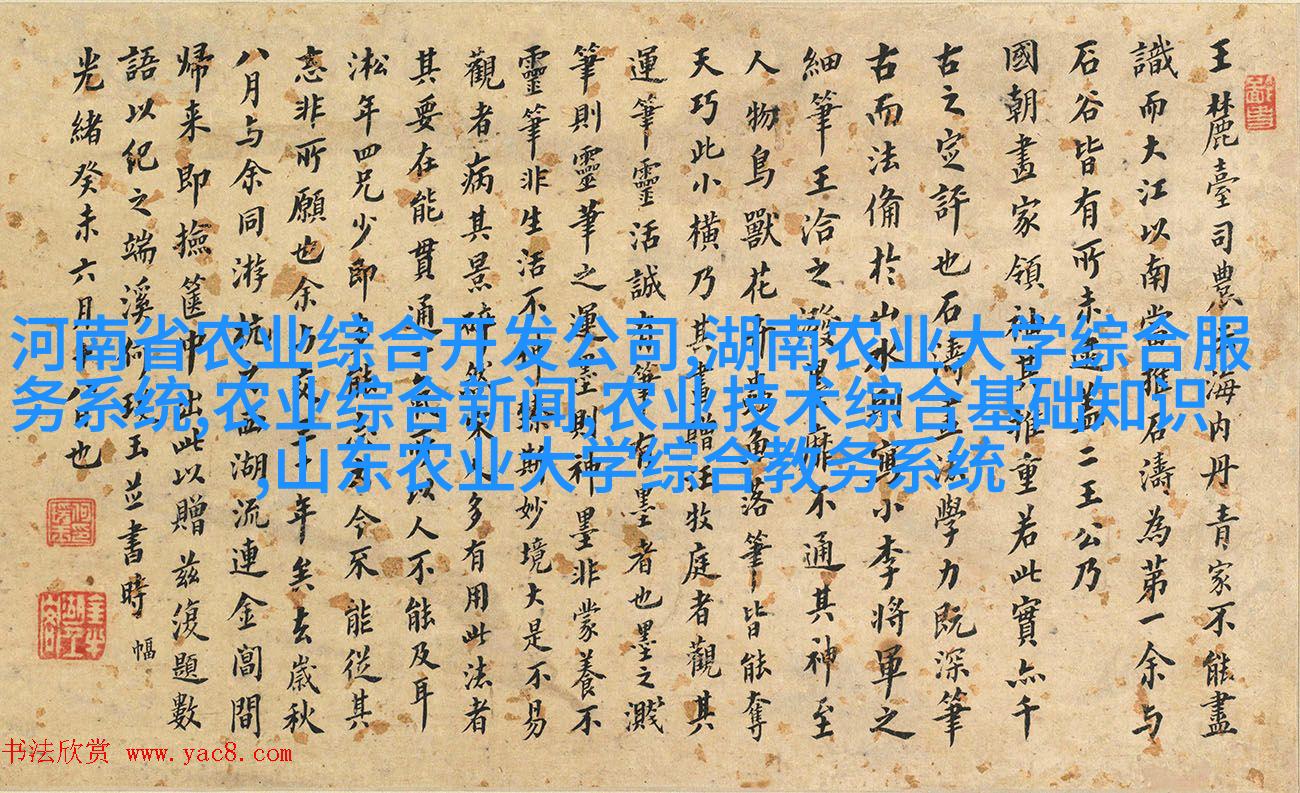 王麓臺司農海内丹青家不能盡
識而大江以南當推石濤為第一余与
石谷皆有所未逮蓋二王公乃
國朝畫家領袖其推重若此實亦千
古之定評也石濤學力既深筆
古而法備於山水別寫小李將軍之
細筆王洽之潑墨靡不通其神至
人物鳥獸花卉蟲魚落筆皆能奪
天巧此小橫乃其畫贈汪牧庭者觀其
運筆靈活誠有筆有墨者也墨之濺
筆則靈筆之運墨則神墨非蒙養不
靈筆非生活不神臻斯妙境大是不易
觀者病其景碎多有用此法者
其要在能貫通所以人不能及耳
淞年四兄少即多能今不能從其
志非所願也余交二十年矣去歲秋
八月与余同游杭之西湖流連金閶間
歸来即撿篋中出此以贈兹復題數
語以紀之端溪何瑗玉並書時
幅
光緒癸未六月十八日也
河南省农业综合开发公司,湖南农业大学综合服
务系统,农业综合新闻,农业技术综合基础知识
,山东农业大学综合教务系统
书法欣赏 www.yac8.com